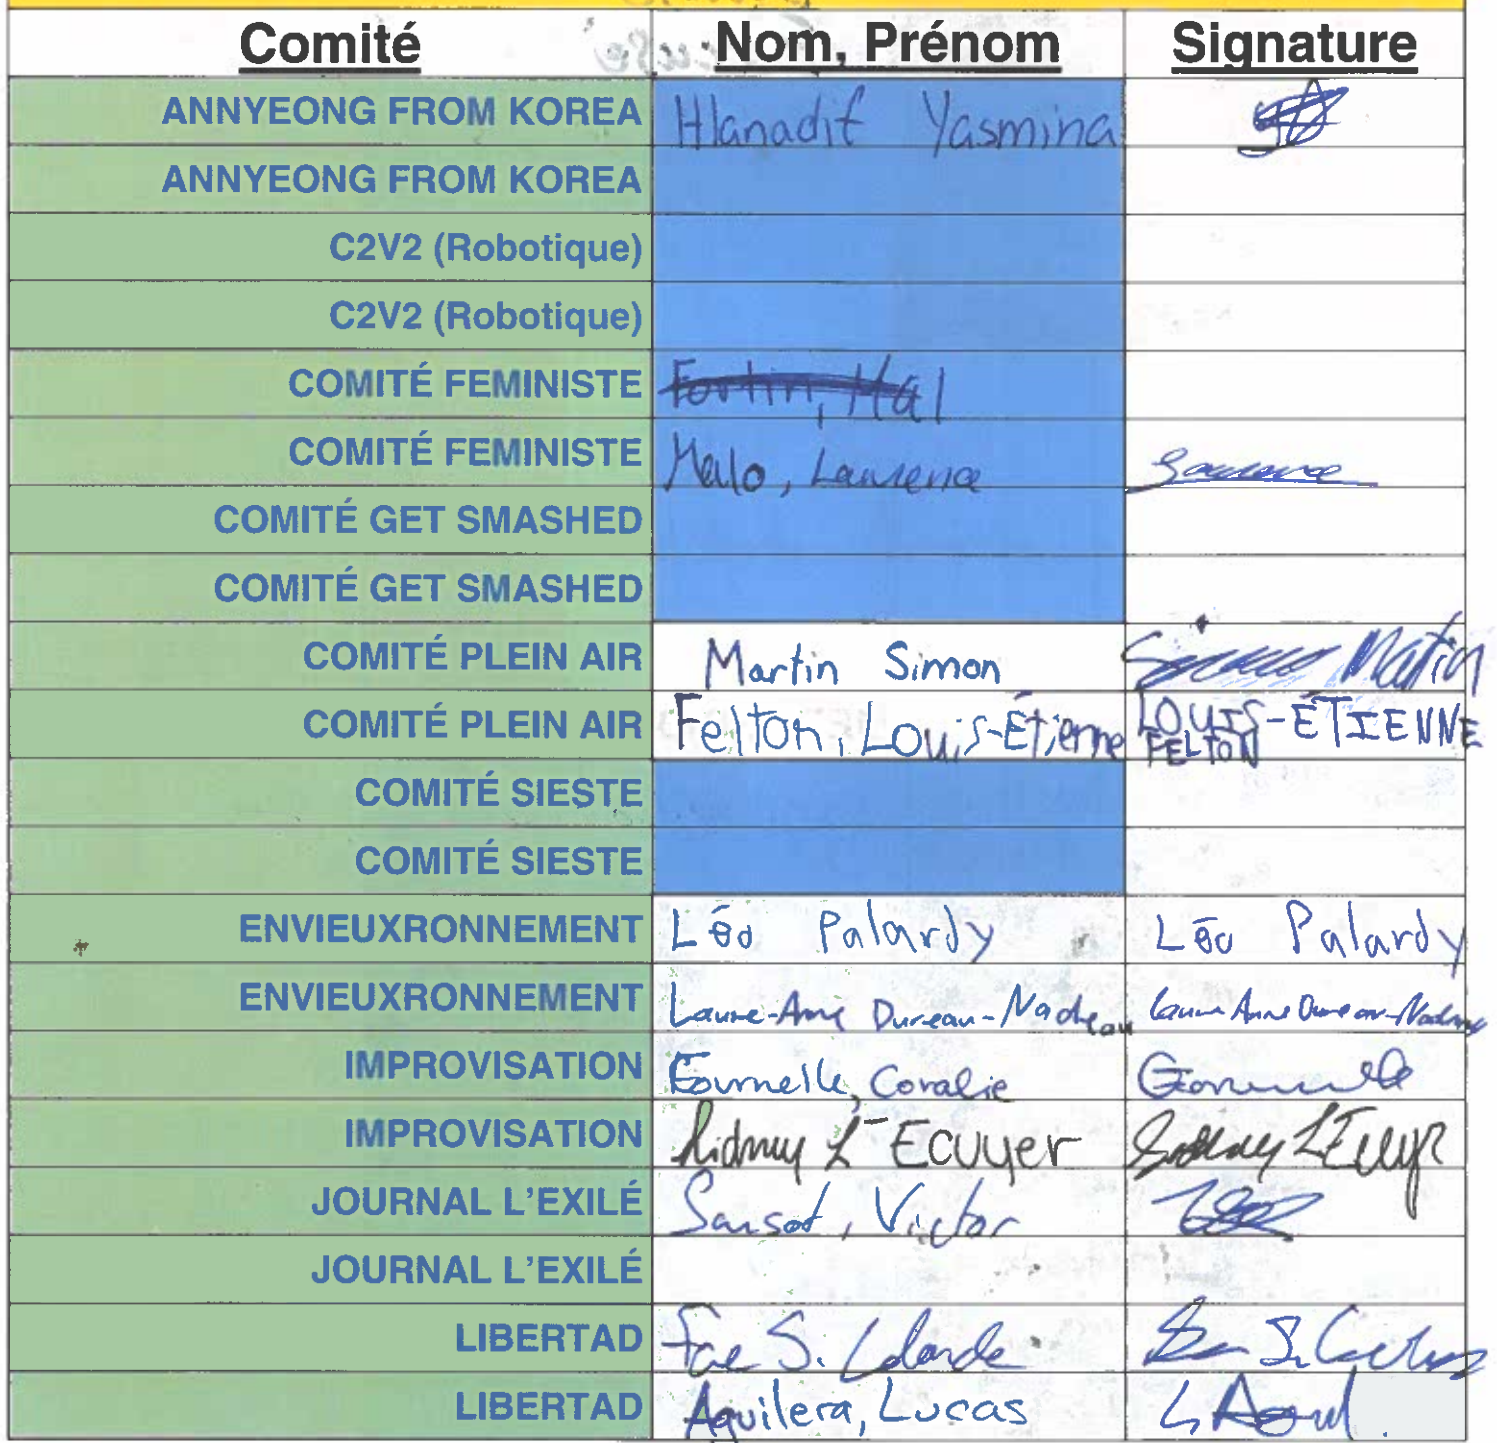 Comité Nom, Prénom Signature
ANNYEONG FROM KOREA Hlanadif Yasmina
ANNYEONG FROM KOREA
C2V2 (Robotique)
C2V2 (Robotique)
COMITÉ FEMINISTE Fortin, Mal
COMITÉ FEMINISTE Malo, Laurence Laurence
COMITÉ GET SMASHED
COMITÉ GET SMASHED
COMITÉ PLEIN AIR Martin Simon Simon Martin
COMITÉ PLEIN AIR Felton, Louis-Étienne LOUIS-ÉTIENNE FELTON
COMITÉ SIESTE
COMITÉ SIESTE
ENVIEUXRONNEMENT Léo Palardy Léo Palardy
ENVIEUXRONNEMENT Laure-Anne Dureau-Nadeau Laure Anne Dureau-Nadeau
IMPROVISATION Fournelle, Coralie
IMPROVISATION Sidney L'Ecuyer Sidney L'Ecuyer
JOURNAL L'EXILÉ Sansot, Victor
JOURNAL L'EXILÉ
LIBERTAD Fae S. Lalande
LIBERTAD Aguilera, Lucas